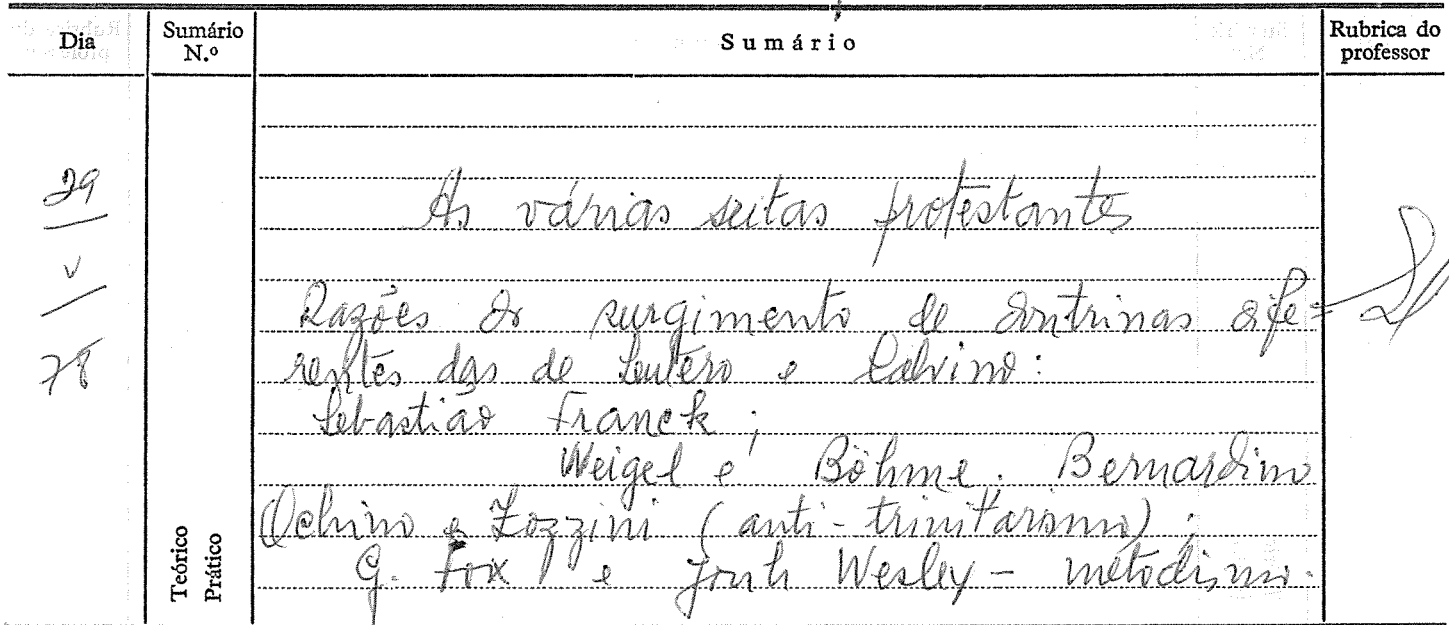 Dia
Sumário N.º
Sumário
Rubrica do professor
29
V
78
Teórico
Prático
As várias seitas protestantes
Razões do surgimento de doutrinas dife=
rentes das de Lutero e Calvino:
Sebastião Franck;
Weigel e Böhme. Bernardino
Ochino e Zozzini (anti-trinitarismo);
G. Fox e Jonh Wesley - metodismo.